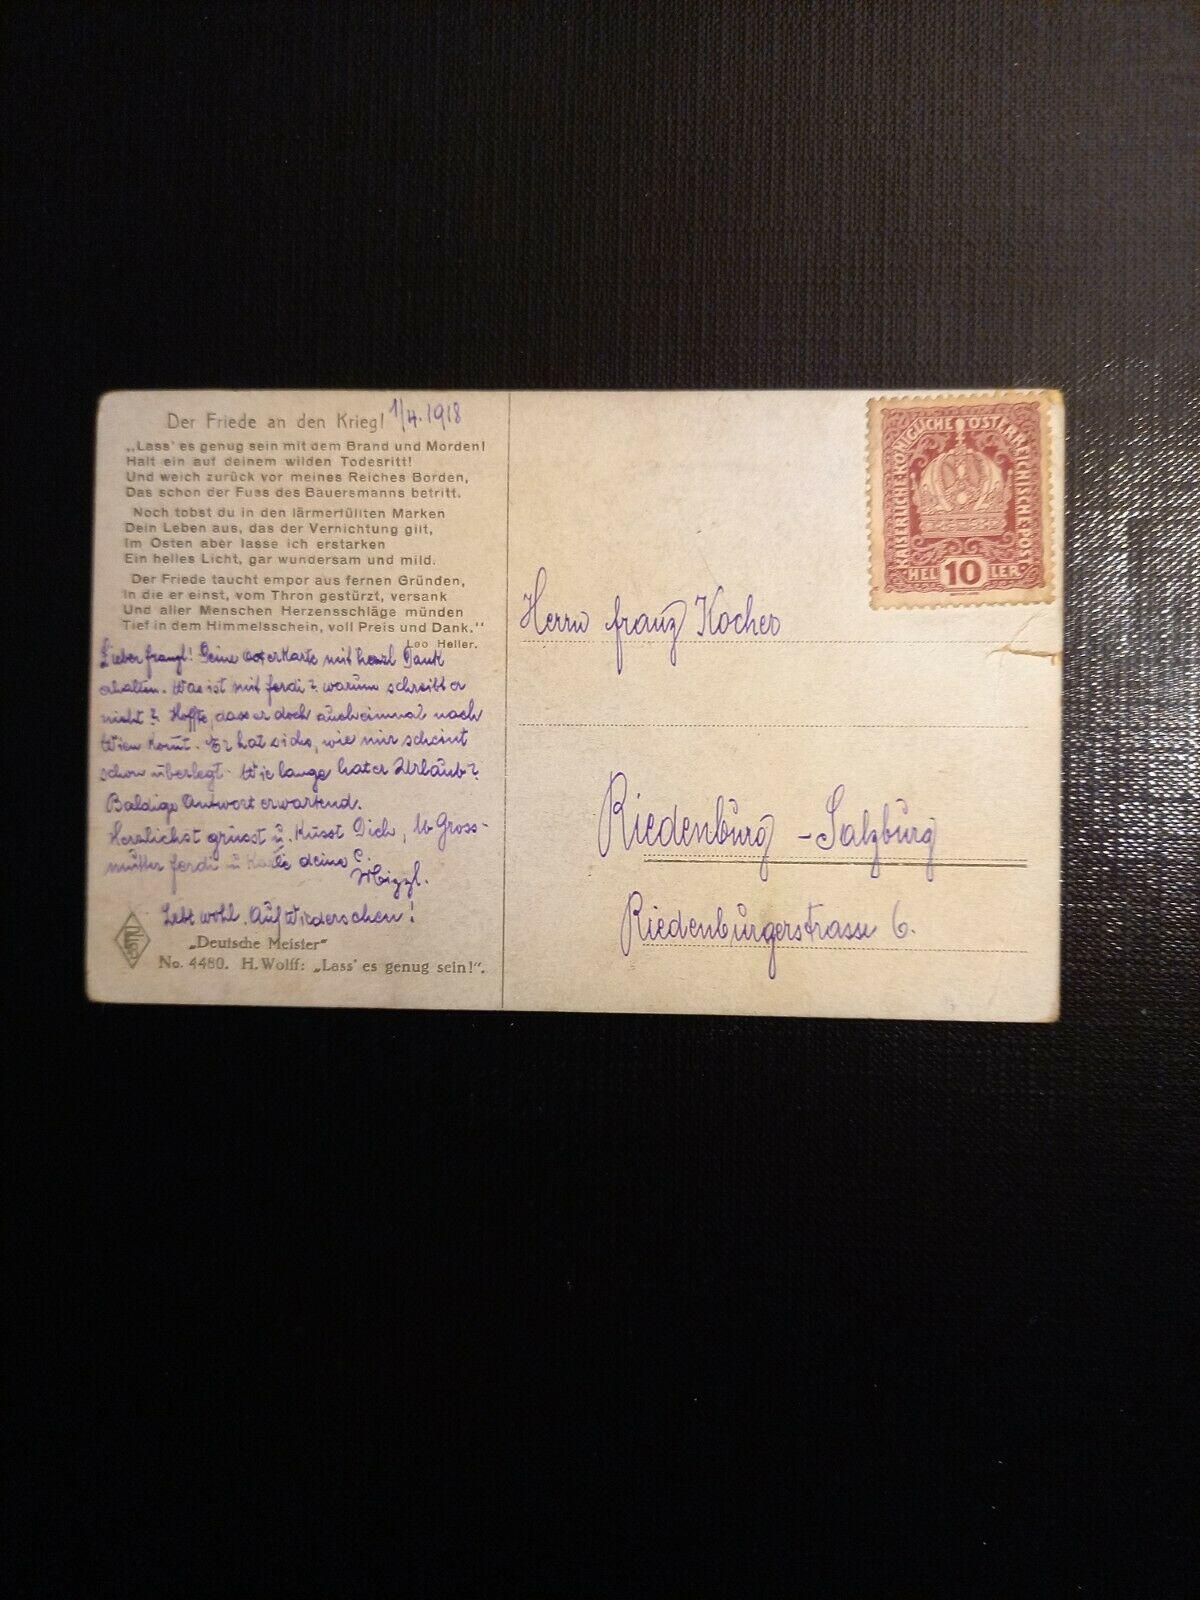 Der Friede an den Krieg! 1/4. 1918
„Lass' es genug sein mit dem Brand und Morden!
Halt ein auf deinem wilden Todesritt!
Und weich zurück vor meines Reiches Borden,
Das schon der Fuss des Bauersmanns betritt.
Noch tobst du in den lärmerfüllten Marken
Dein Leben aus, das der Vernichtung gilt,
Im Osten aber lasse ich erstarken
Ein helles Licht, gar wundersam und mild.
Der Friede taucht empor aus fernen Gründen,
In die er einst, vom Thron gestürzt, versank
Und aller Menschen Herzensschläge münden
Tief in dem Himmelsschein, voll Preis und Dank."
Leo Heller.
Lieber franzl! Deine Osterkarte mit herzl Dank
erhalten. Was ist mit ferdi? warum schreibt er
nicht? Hoffe, dass er doch auch einmal nach
Wien komt. Er hat sichs, wie mir scheint
schon überlegt. Wie lange hat er Urlaub?
Baldige Antwort erwartend.
Herzlichst grüsst u. Küsst Dich, Gross-
mutter ferdi u deine
Mizzl.
Lebt wohl. Auf Wiedersehen!
„Deutsche Meister"
No. 4480. H. Wolff: „Lass' es genug sein!".
KAISERLICHE KÖNIGLICHE ÖSTERREICHISCHE POST
HEL 10 LER
Herrn franz Kocher
Riedenburg - Salzburg
Riedenburgerstrasse 6.